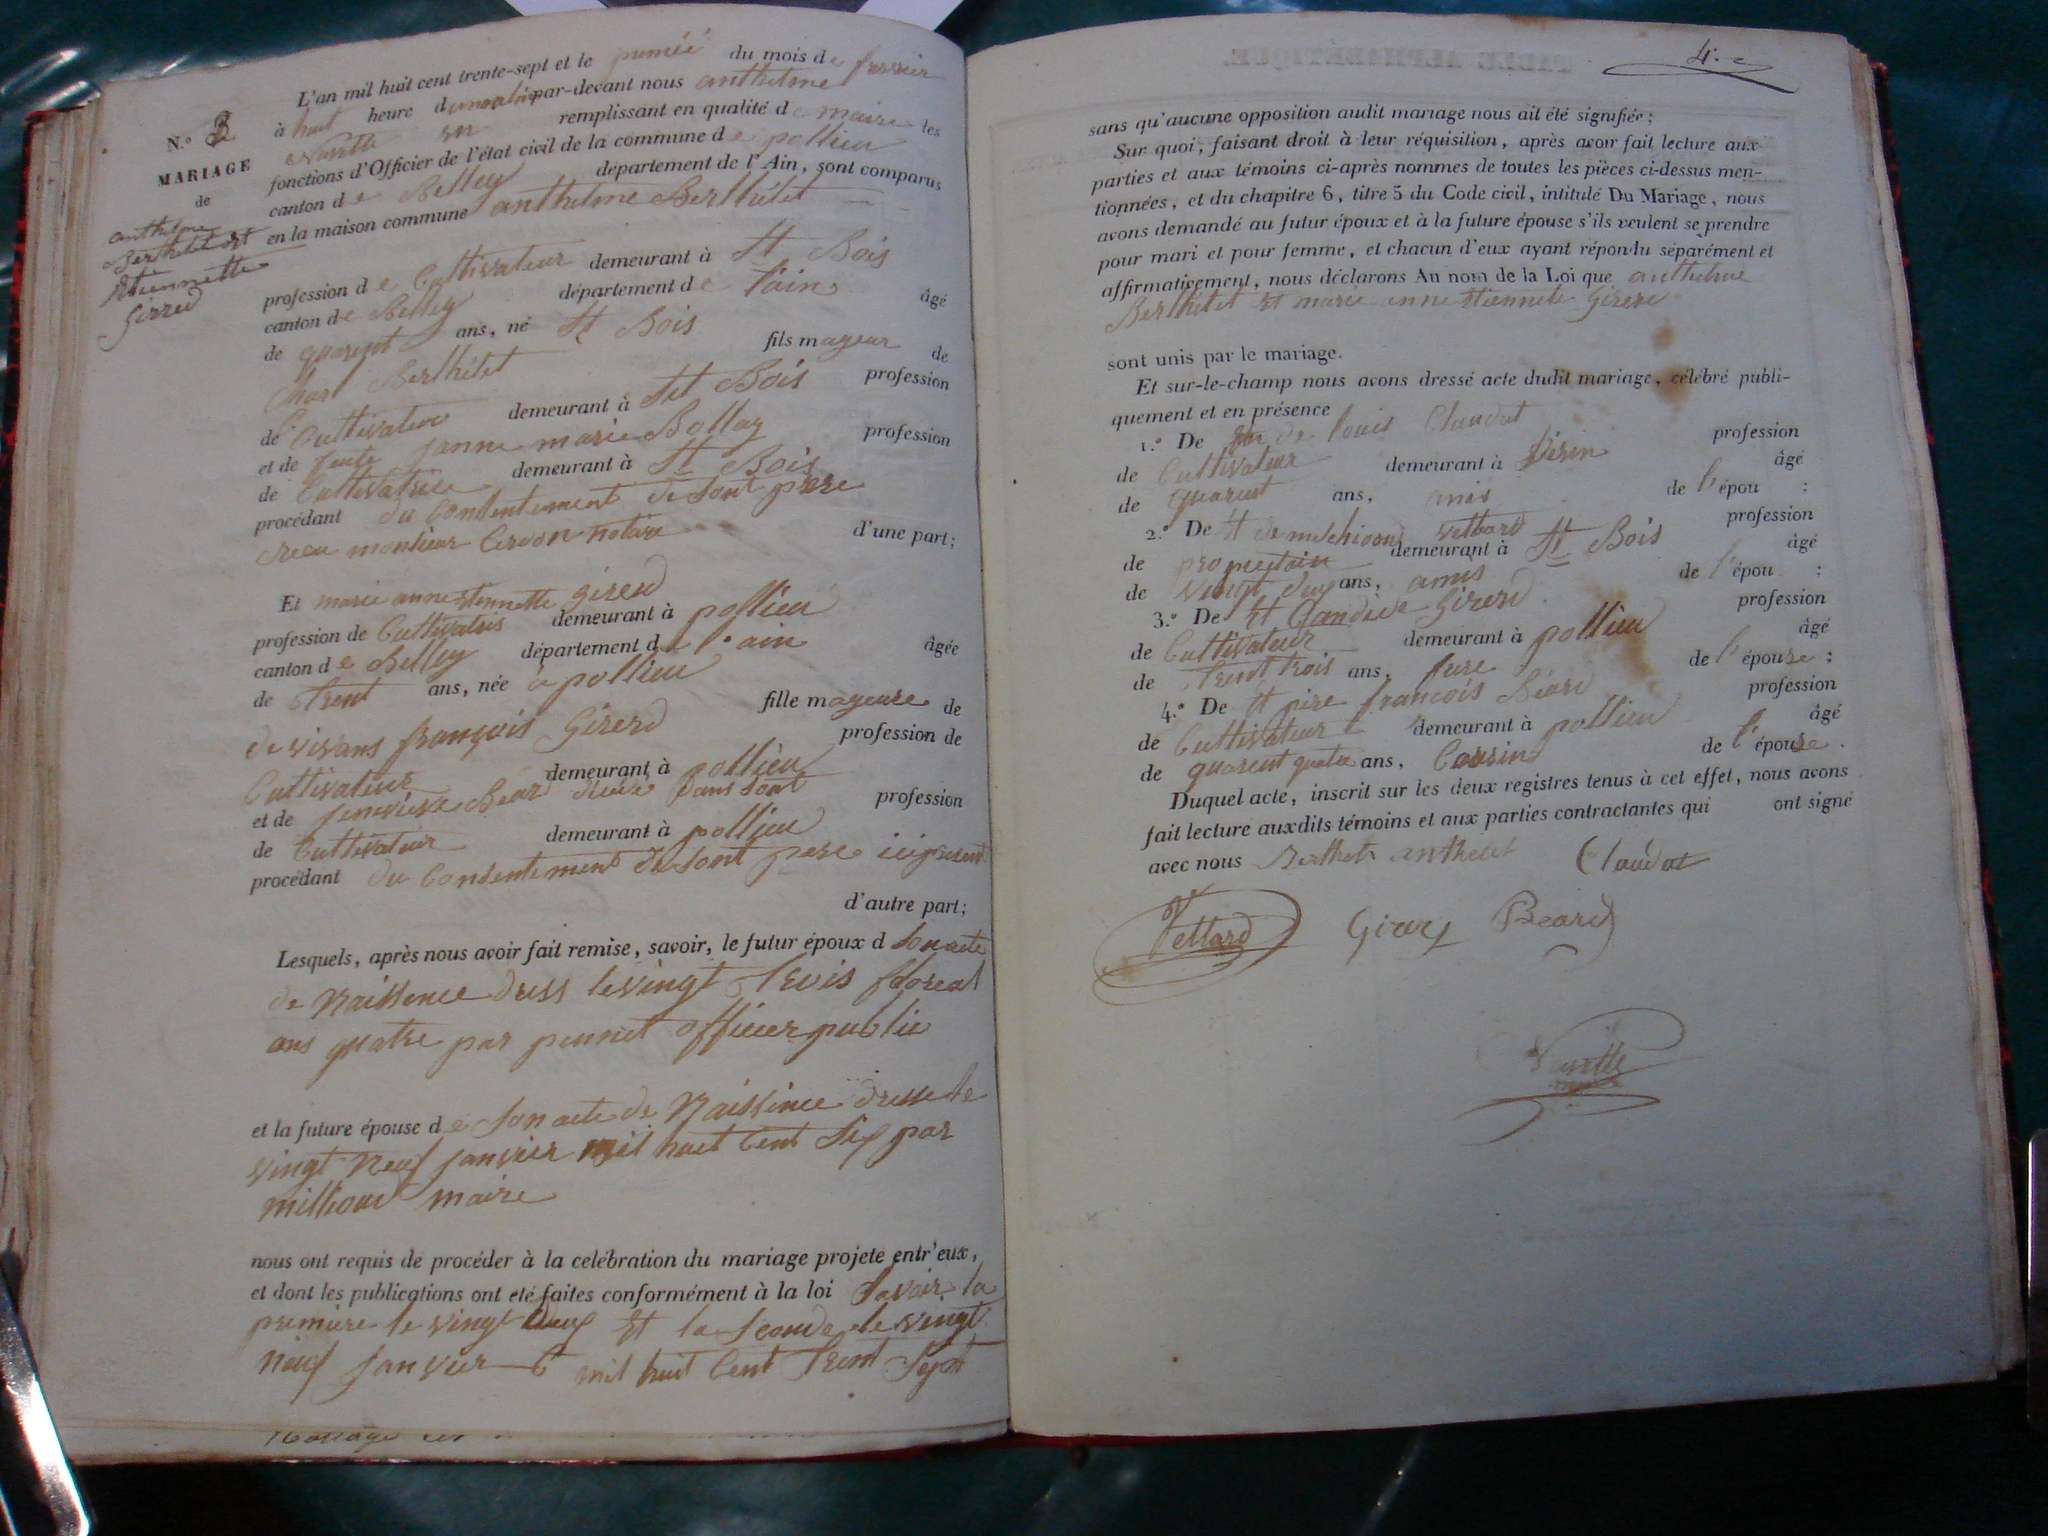 N.o 3
MARIAGE
de
anthelme
Berthélet et
Etiennette
Girerd
L'an mil huit cent trente-sept et le premié du mois de fevrier
à huit heure du matin par-devant nous anthelme
remplissant en qualité de maire les
fonctions d'Officier de l'état civil de la commune de pollieu
canton de Belley département de l'Ain, sont comparus
en la maison commune anthelme Berthélet
profession de Cultivateur demeurant à St Bois
canton de Belley département de l'ain âgé
de quarent ans, né St Bois fils mayeur de
Berthélet profession
de Cultivateur demeurant à St Bois
et de feute janne marie Bollay profession
de Cultivatrice demeurant à St Bois
procédant du Consentement de sont pere
recu monsieur Cerdon notaire d'une part;
Et marie anne etiennette girerd
profession de Cultivatris demeurant à pollieu
canton de Belley département de l'ain âgée
de trent ans, née à pollieu
fille mayeure de
de vivans françois Girerd profession de
Cultivateur demeurant à pollieu
et de jenvieve Bear profession
de Cultivateur demeurant à pollieu
procédant du Consentement de sont pere ici present
d'autre part;
Lesquels, après nous avoir fait remise, savoir, le futur époux d son acte
de Naissence dress le vingt trois floreal
ans quatre par pennet officier public
et la future épouse de son acte de Naissence dresse le
vingt neuf janvier mil huit Cent six par
millioud maire
nous ont requis de procéder à la celébration du mariage projeté entr'eux,
et dont les publications ont eté faites conformément à la loi savoir la
premiere le vingt deux et la seconde le vingt
neuf janvier mil huit Cent trent sept
4.e
sans qu'aucune opposition audit mariage nous ait été signifiée;
Sur quoi, faisant droit à leur réquisition, après avoir fait lecture aux
parties et aux témoins ci-après nommes de toutes les pièces ci-dessus men-
tionnées, et du chapitre 6, titre 5 du Code civil, intitulé Du Mariage, nous
avons demandé au futur époux et à la future épouse s'ils veulent se prendre
pour mari et pour femme, et chacun d'eux ayant répondu séparément et
affirmativement, nous déclarons Au nom de la Loi que anthelme
Berthélet et marie anne etiennete Girerd
sont unis par le mariage.
Et sur-le-champ nous avons dressé acte dudit mariage, célébré publi-
quement et en présence
1.o De de louis Claudat profession
de Cultivateur demeurant à âgé
de quarent ans, amis de l'épou :
2.o De St de melchioor vettard profession
de propriétair demeurant à St Bois âgé
de vingt deux ans, amis de l'épou :
3.o De St Girerd profession
de Cultivateur demeurant à pollieu âgé
de trent trois ans, frere de l'épouse :
4.o De St piere françois Béard profession
de Cultivateur demeurant à pollieu âgé
de quarent quatre ans, Cousin de l'épouse.
Duquel acte, inscrit sur les deux registres tenus à cet effet, nous avons
fait lecture auxdits témoins et aux parties contractantes qui ont signé
avec nous Berthet anthelet Claudat
Vettard Béard